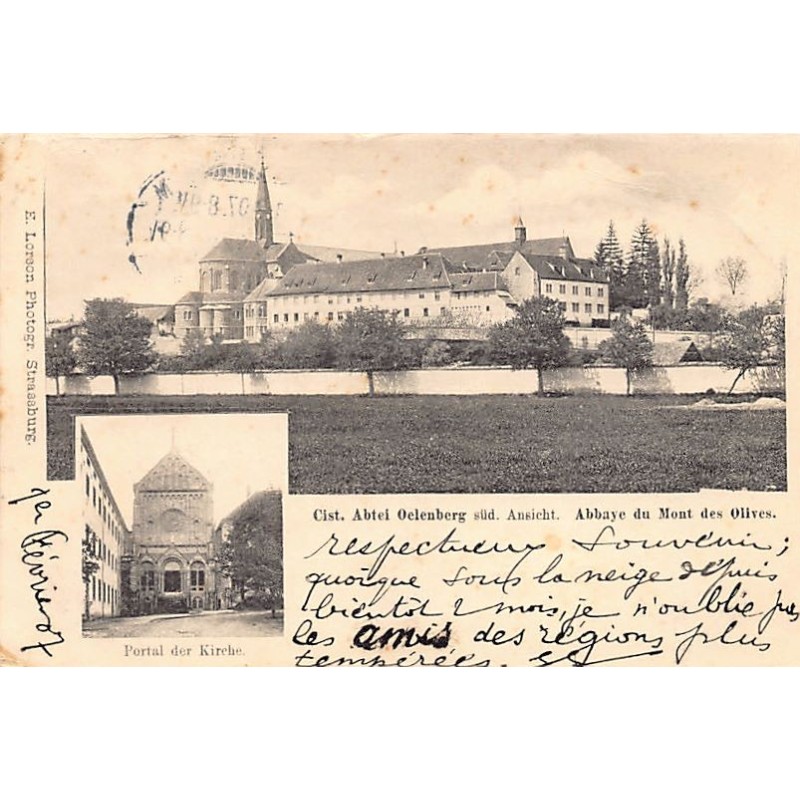 E. Lorson Photogr. Strassburg.
Cist. Abtei Oelenberg süd. Ansicht. Abbaye du Mont des Olives.
Portal der Kirche.
1er Février 07
respectueux souvenir;
quoique sous la neige depuis
bientôt 2 mois, je n'oublie pas
les amis des régions plus
tempérées.